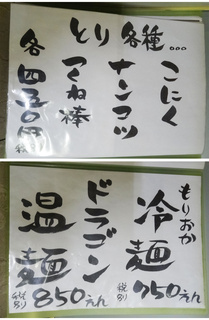 とり各種…
こにく
ナンコツ
つくね棒
各四五〇円
税別
もりおか
冷麺
税別 950えん
ドラゴン
温麺
税別 850えん